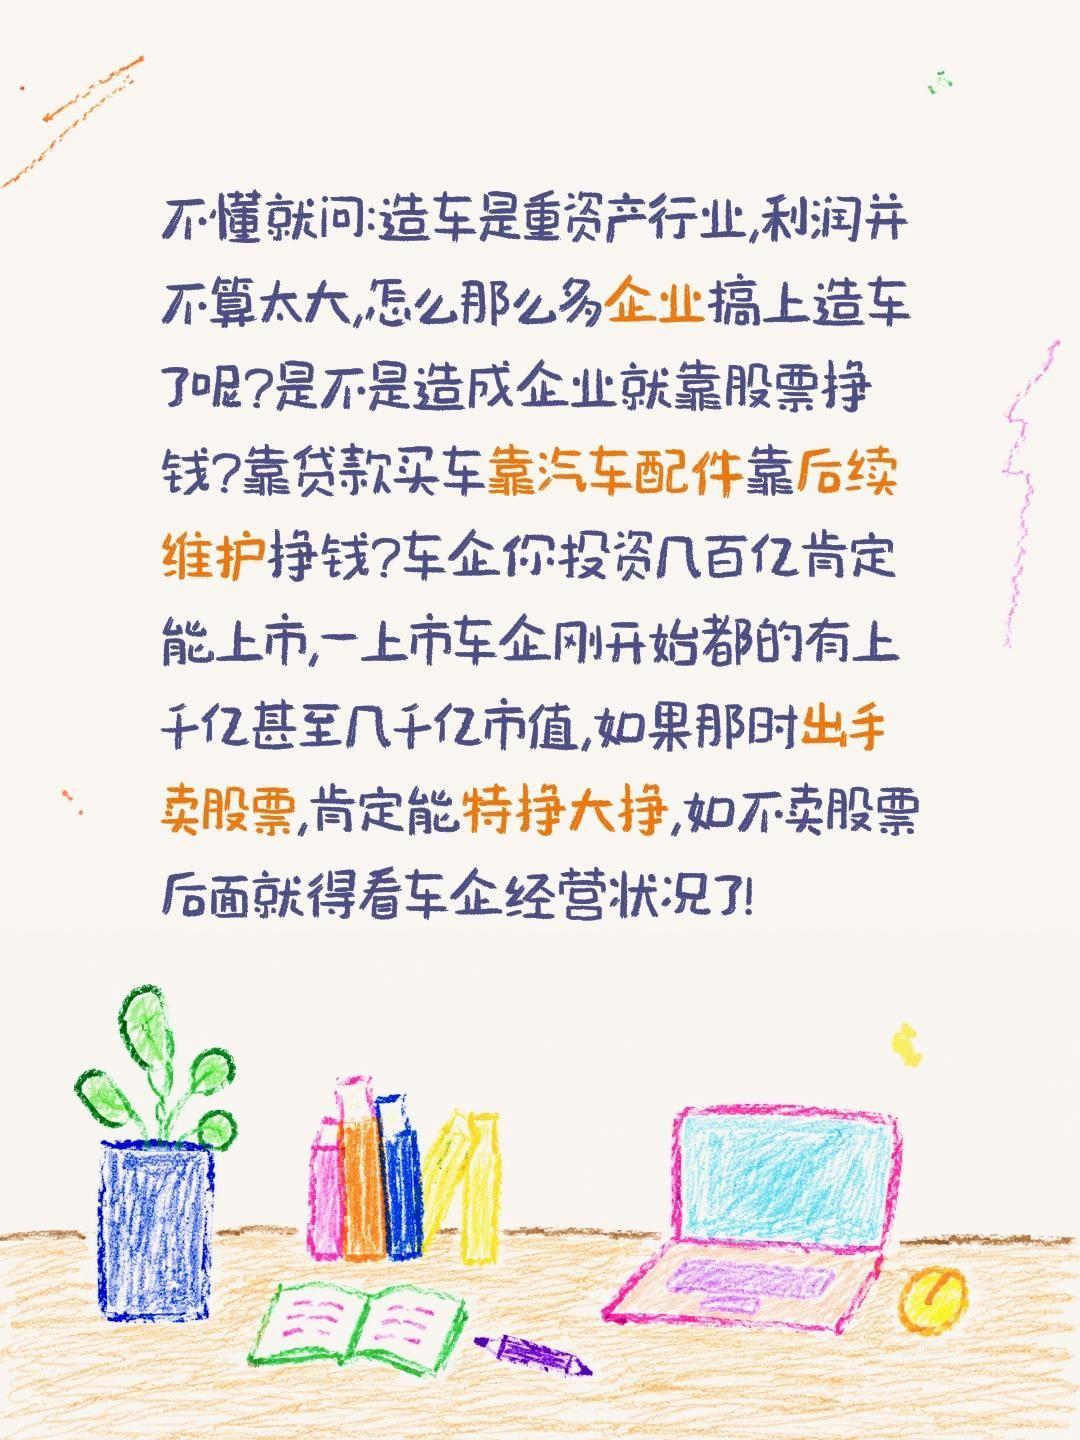 不懂就问:造车是重资产行业,利润并
不算太大,怎么那么多企业搞上造车
了呢?是不是造成企业就靠股票挣
钱?靠贷款买车靠汽车配件靠后续
维护挣钱?车企你投资几百亿肯定
能上市,一上市车企刚开始都的有上
千亿甚至几千亿市值,如果那时出手
卖股票,肯定能特挣大挣,如不卖股票
后面就得看车企经营状况了!